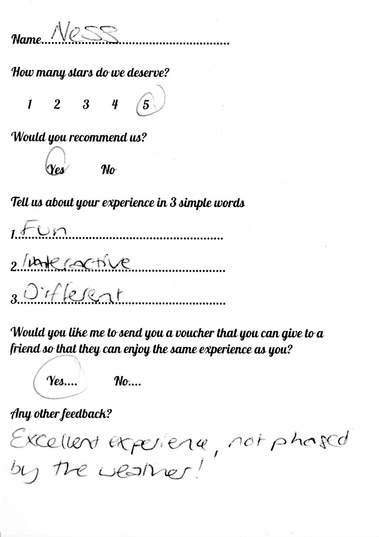 Name... Ness
How many stars do we deserve?
1 2 3 4 5
Would you recommend us?
Yes No
Tell us about your experience in 3 simple words
1. Fun
2. Interactive
3. Different
Would you like me to send you a voucher that you can give to a
friend so that they can enjoy the same experience as you?
Yes.... No....
Any other feedback?
Excellent experience, not phased
by the weather!